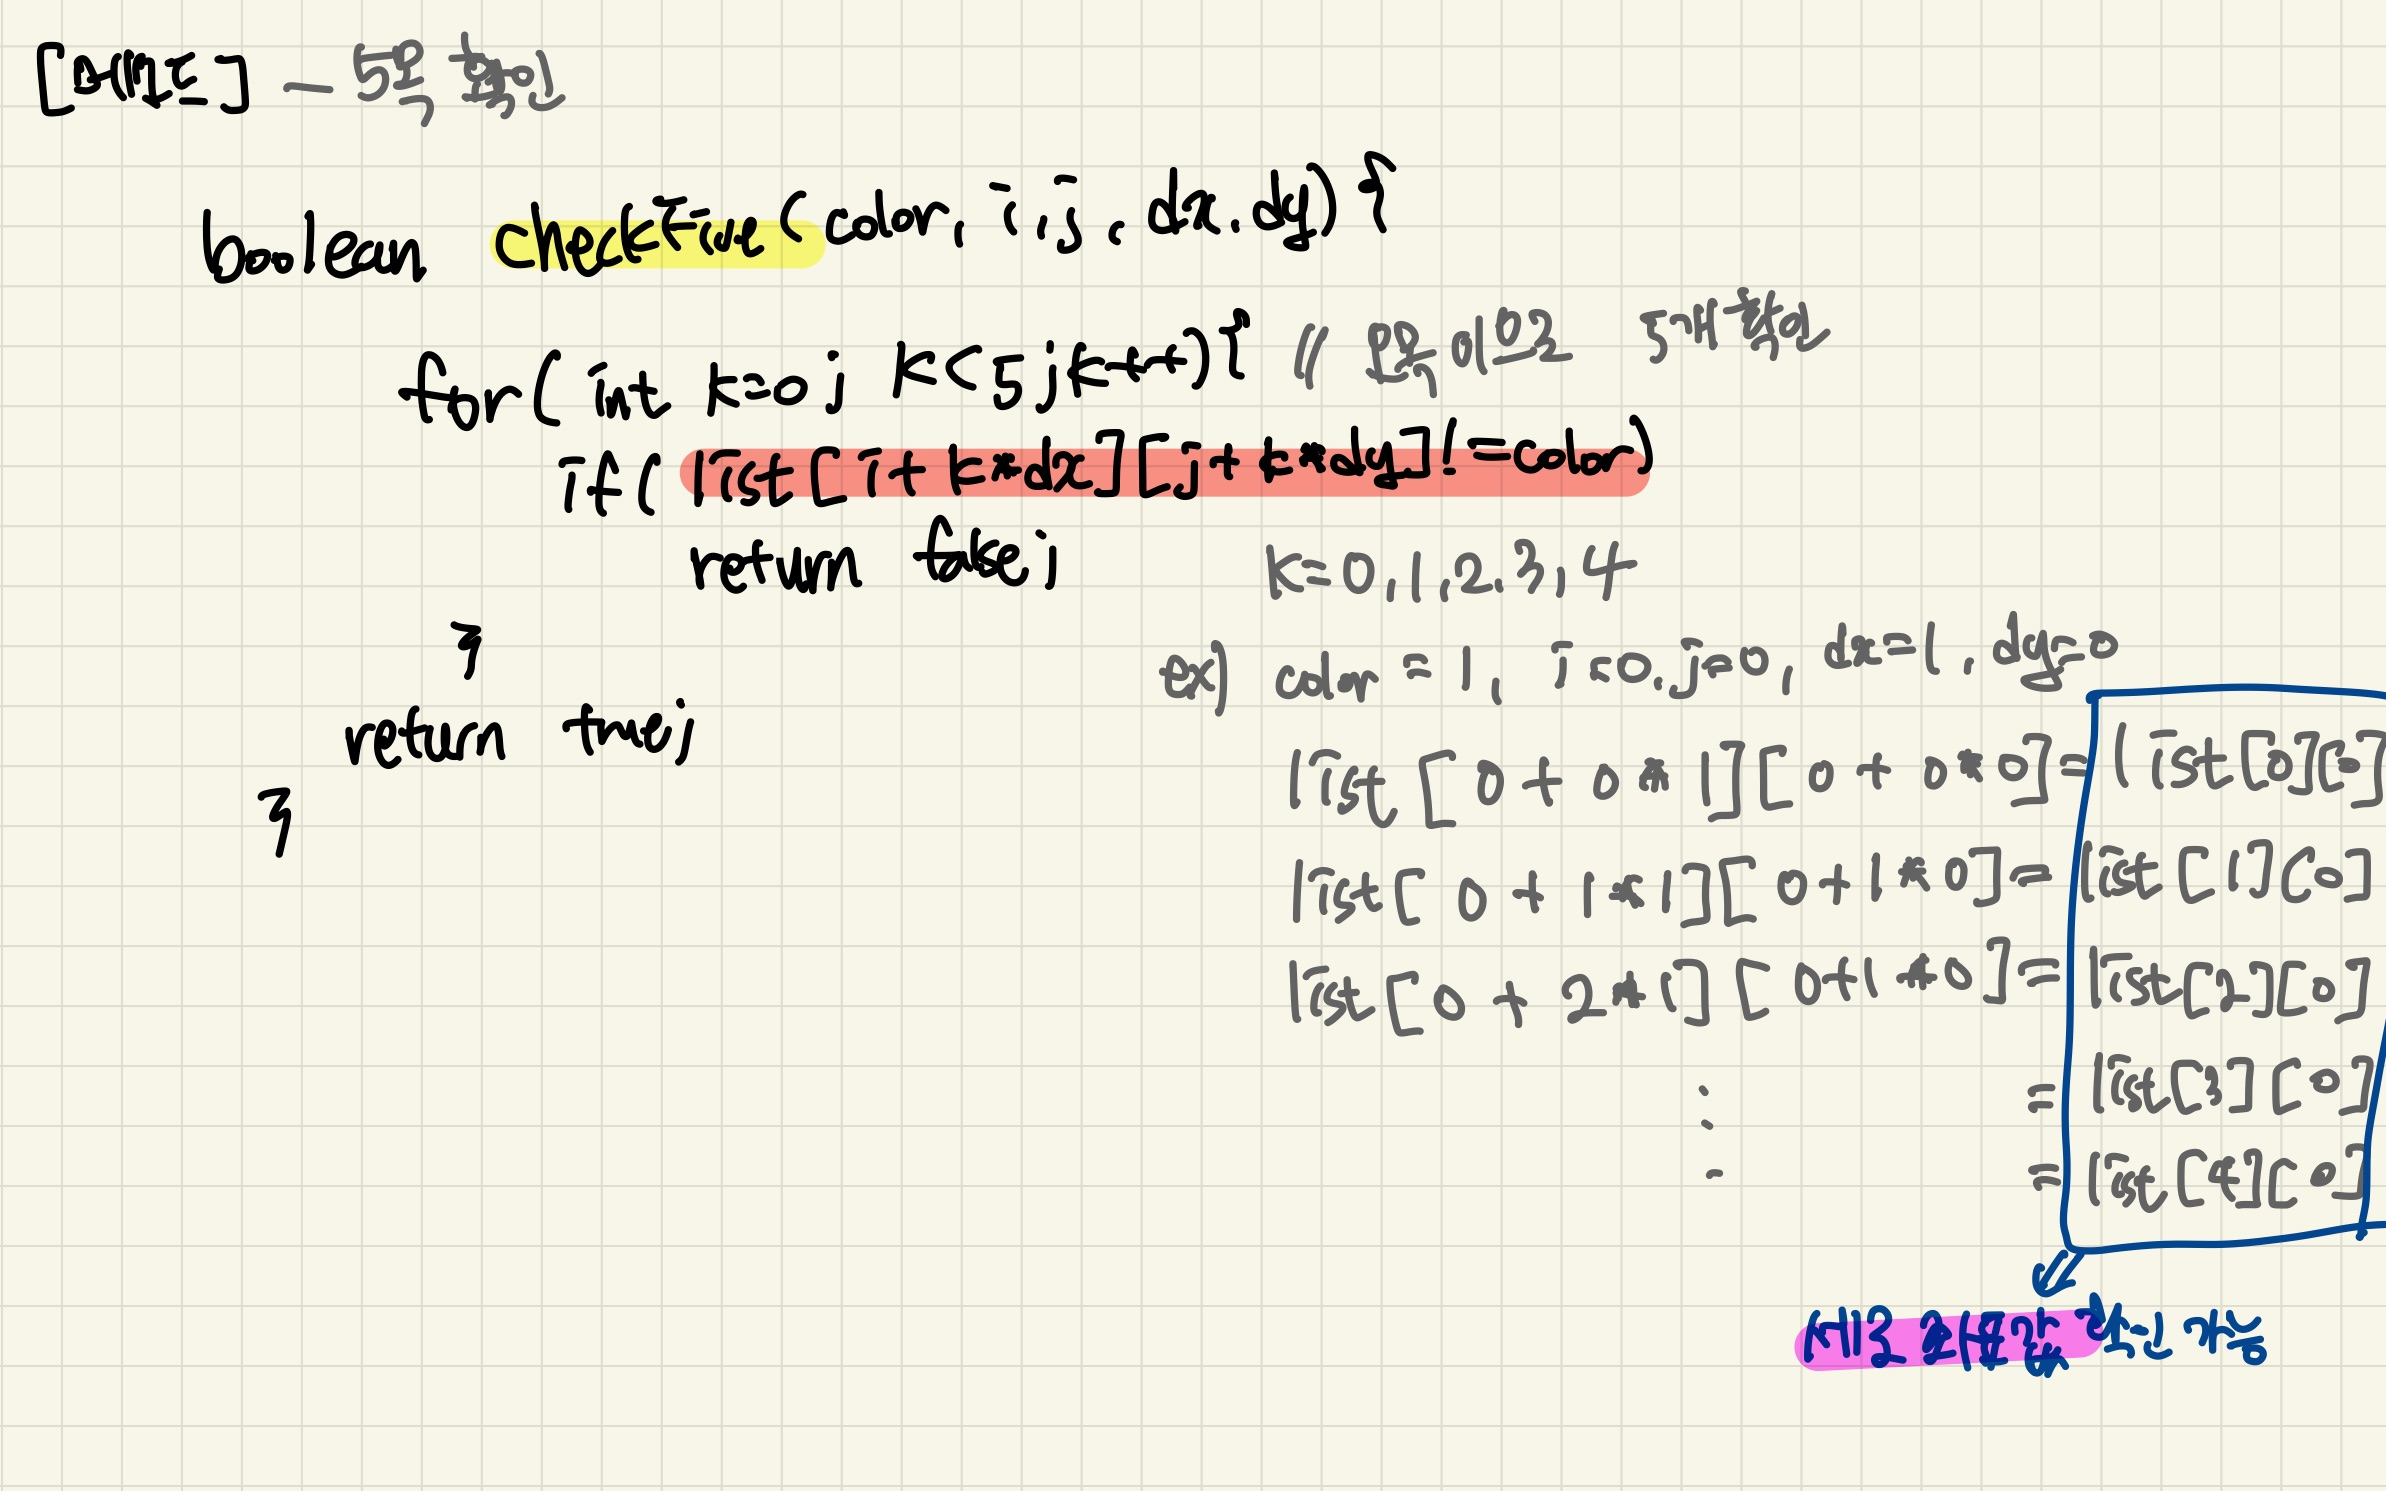 [메서드] — 5목 확인
boolean checkFive(color, i, j, dx, dy) {
for( int k=0; k<5; k++) { // 연속으로 5개 확인
if( list[i+k*dx][j+k*dy]!=color)
return false;
k=0,1,2,3,4
}
ex) color = 1, i=0, j=0, dx=1, dy=0
return true;
list [0 + 0 * 1][0 + 0 * 0] = list[0][0]
}
list[0 + 1*1][0+1*0] = list[1][0]
list[0 + 2*1][0+1*0] = list[2][0]
⋮ = list[3][0]
= list[4][0]
세로 확인 가능